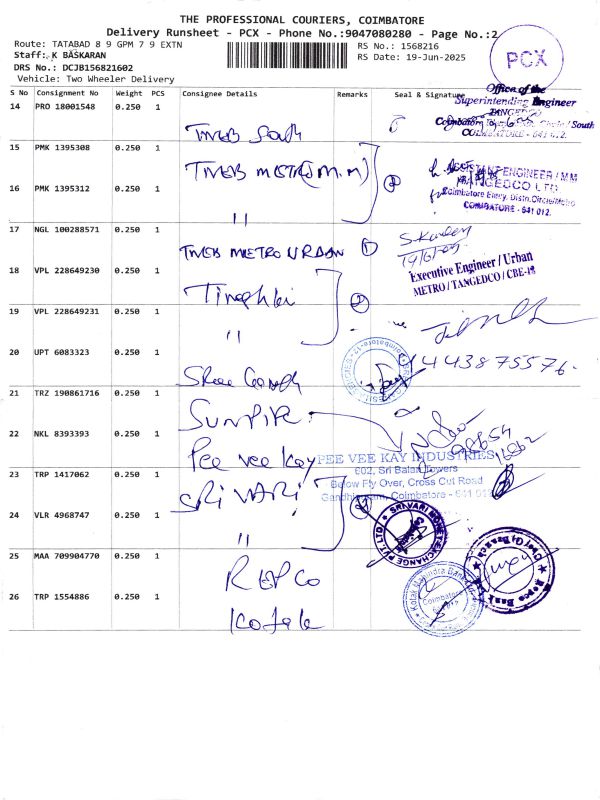 THE PROFESSIONAL COURIERS, COIMBATORE
Delivery Runsheet - PCX - Phone No.:9047080280 - Page No.:2
Route: TATABAD 8 9 GPM 7 9 EXTN
RS No.: 1568216
Staff: K BASKARAN
RS Date: 19-Jun-2025
DRS No.: DCJB156821602
Vehicle: Two Wheeler Delivery
PCX
S No Consignment No Weight PCS Consignee Details Remarks Seal & Signature
Office of the
Superintending Engineer
TANGEDCO
COIMBATORE - 641 012.
14 PRO 18001548 0.250 1
TNEB South
15 PMK 1395308 0.250 1
TNEB METRO (M.M)
ASSISTANT ENGINEER / MM
TANGEDCO LTD
Coimbatore Elecy. Distn. Circle/Metro
COIMBATORE - 641 012.
16 PMK 1395312 0.250 1
"
2
17 NGL 100288571 0.250 1
TNEB METRO URBAN 1
19/6/25
Executive Engineer / Urban
METRO / TANGEDCO / CBE-12
18 VPL 228649230 0.250 1
2
19 VPL 228649231 0.250 1
"
20 UPT 6083323 0.250 1
Shree
9443875576
21 TRZ 190861716 0.250 1
22 NKL 8393393 0.250 1
Pee vee kay
PEE VEE KAY INDUSTRIES
602, Sri Balaji Towers
Below Fly Over, Cross Cut Road
Gandhipuram, Coimbatore - 641 012
23 TRP 1417062 0.250 1
SRI VARI
24 VLR 4968747 0.250 1
"
2
SRIVARI MONEYEXCHANGE PVT LTD
25 MAA 709904770 0.250 1
REPCO
Repco Bank
26 TRP 1554886 0.250 1
Kotak
Kotak Mahindra Bank
Coimbatore